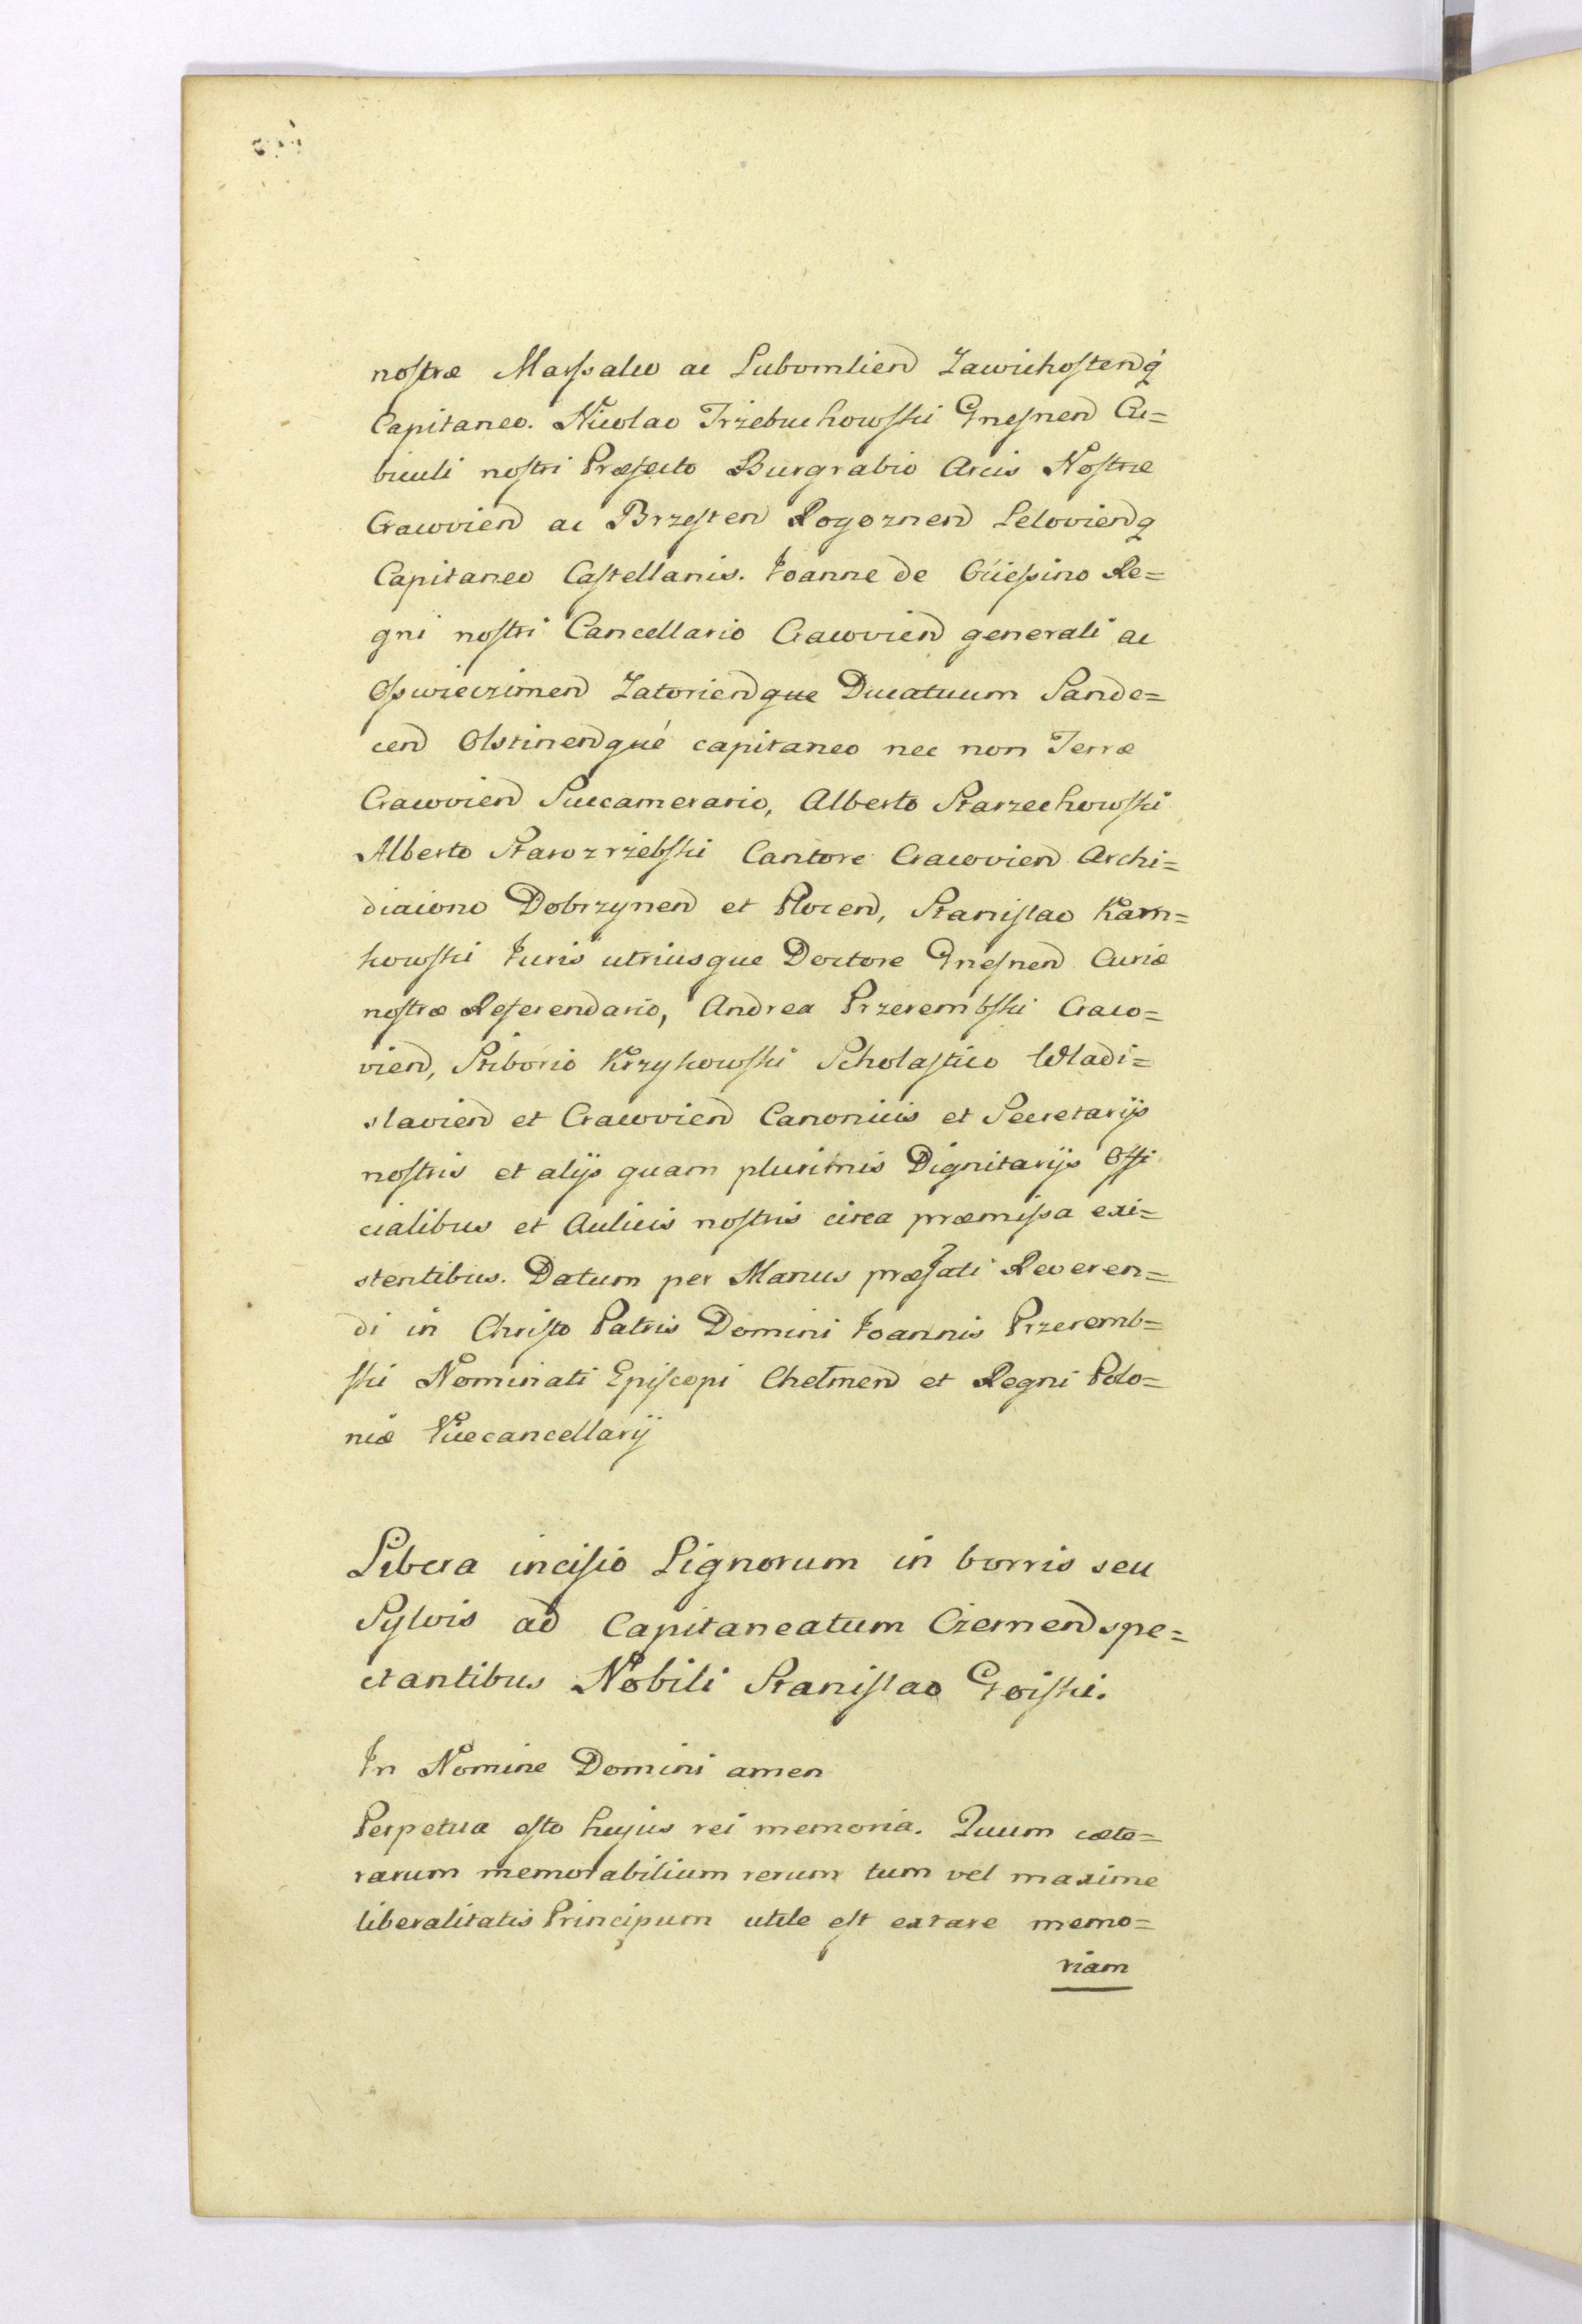 nostræ Marsalco ac Lubomlien Zawichostenq
Capitaneo. Nicolao Trzebuchowski Gnesnen Cu=
biculi nostri Præfecto Burgrabio Arcis Nostræ
Cracovien ac Brzesten Rogoznen Lelovienq
Capitaneo Castellanis. Joanne de Ociessino Re=
gni nostri Cancellario Cracovien generali ac
Osswieczimen Zatorienque Ducatuum Sande=
cen Olstinenque capitaneo nec non Terræ
Cracovien Succamerario, Alberto Starzechowski
Alberto Starozrzebski Cantore Cracovien Archi=
diacono Dobrzynen et Plocen, Stanislao Karn=
kowski Juris utriusque Doctore Gnesnen Curiæ
nostræ Referendario, Andrea Przerembski Craco=
vien, Stiborio Krzykowski Scholastico Wladi=
slavien et Cracovien Canonicis et Secretarijs
nostris et alijs quam plurimis Dignitarijs Offi
cialibus et Aulicis nostris circa præmissa exi=
stentibus. Datum per Manus præfati Reveren=
di in Christo Patris Domini Joannis Przeremb=
ski Nominati Episcopi Chelmen et Regni Polo=
niæ Vicecancellarij
Libera incisio Lignorum in borris seu
Sylvis ad Capitaneatum Czernen spe=
ctantibus Nobili Stanislao Goiski.
In Nomine Domini amen
Perpetua esto hujus rei memoria. Quum cæte=
rarum memorabilium rerum tum vel maxime
liberalitatis Principum utile est extare memo=
riam